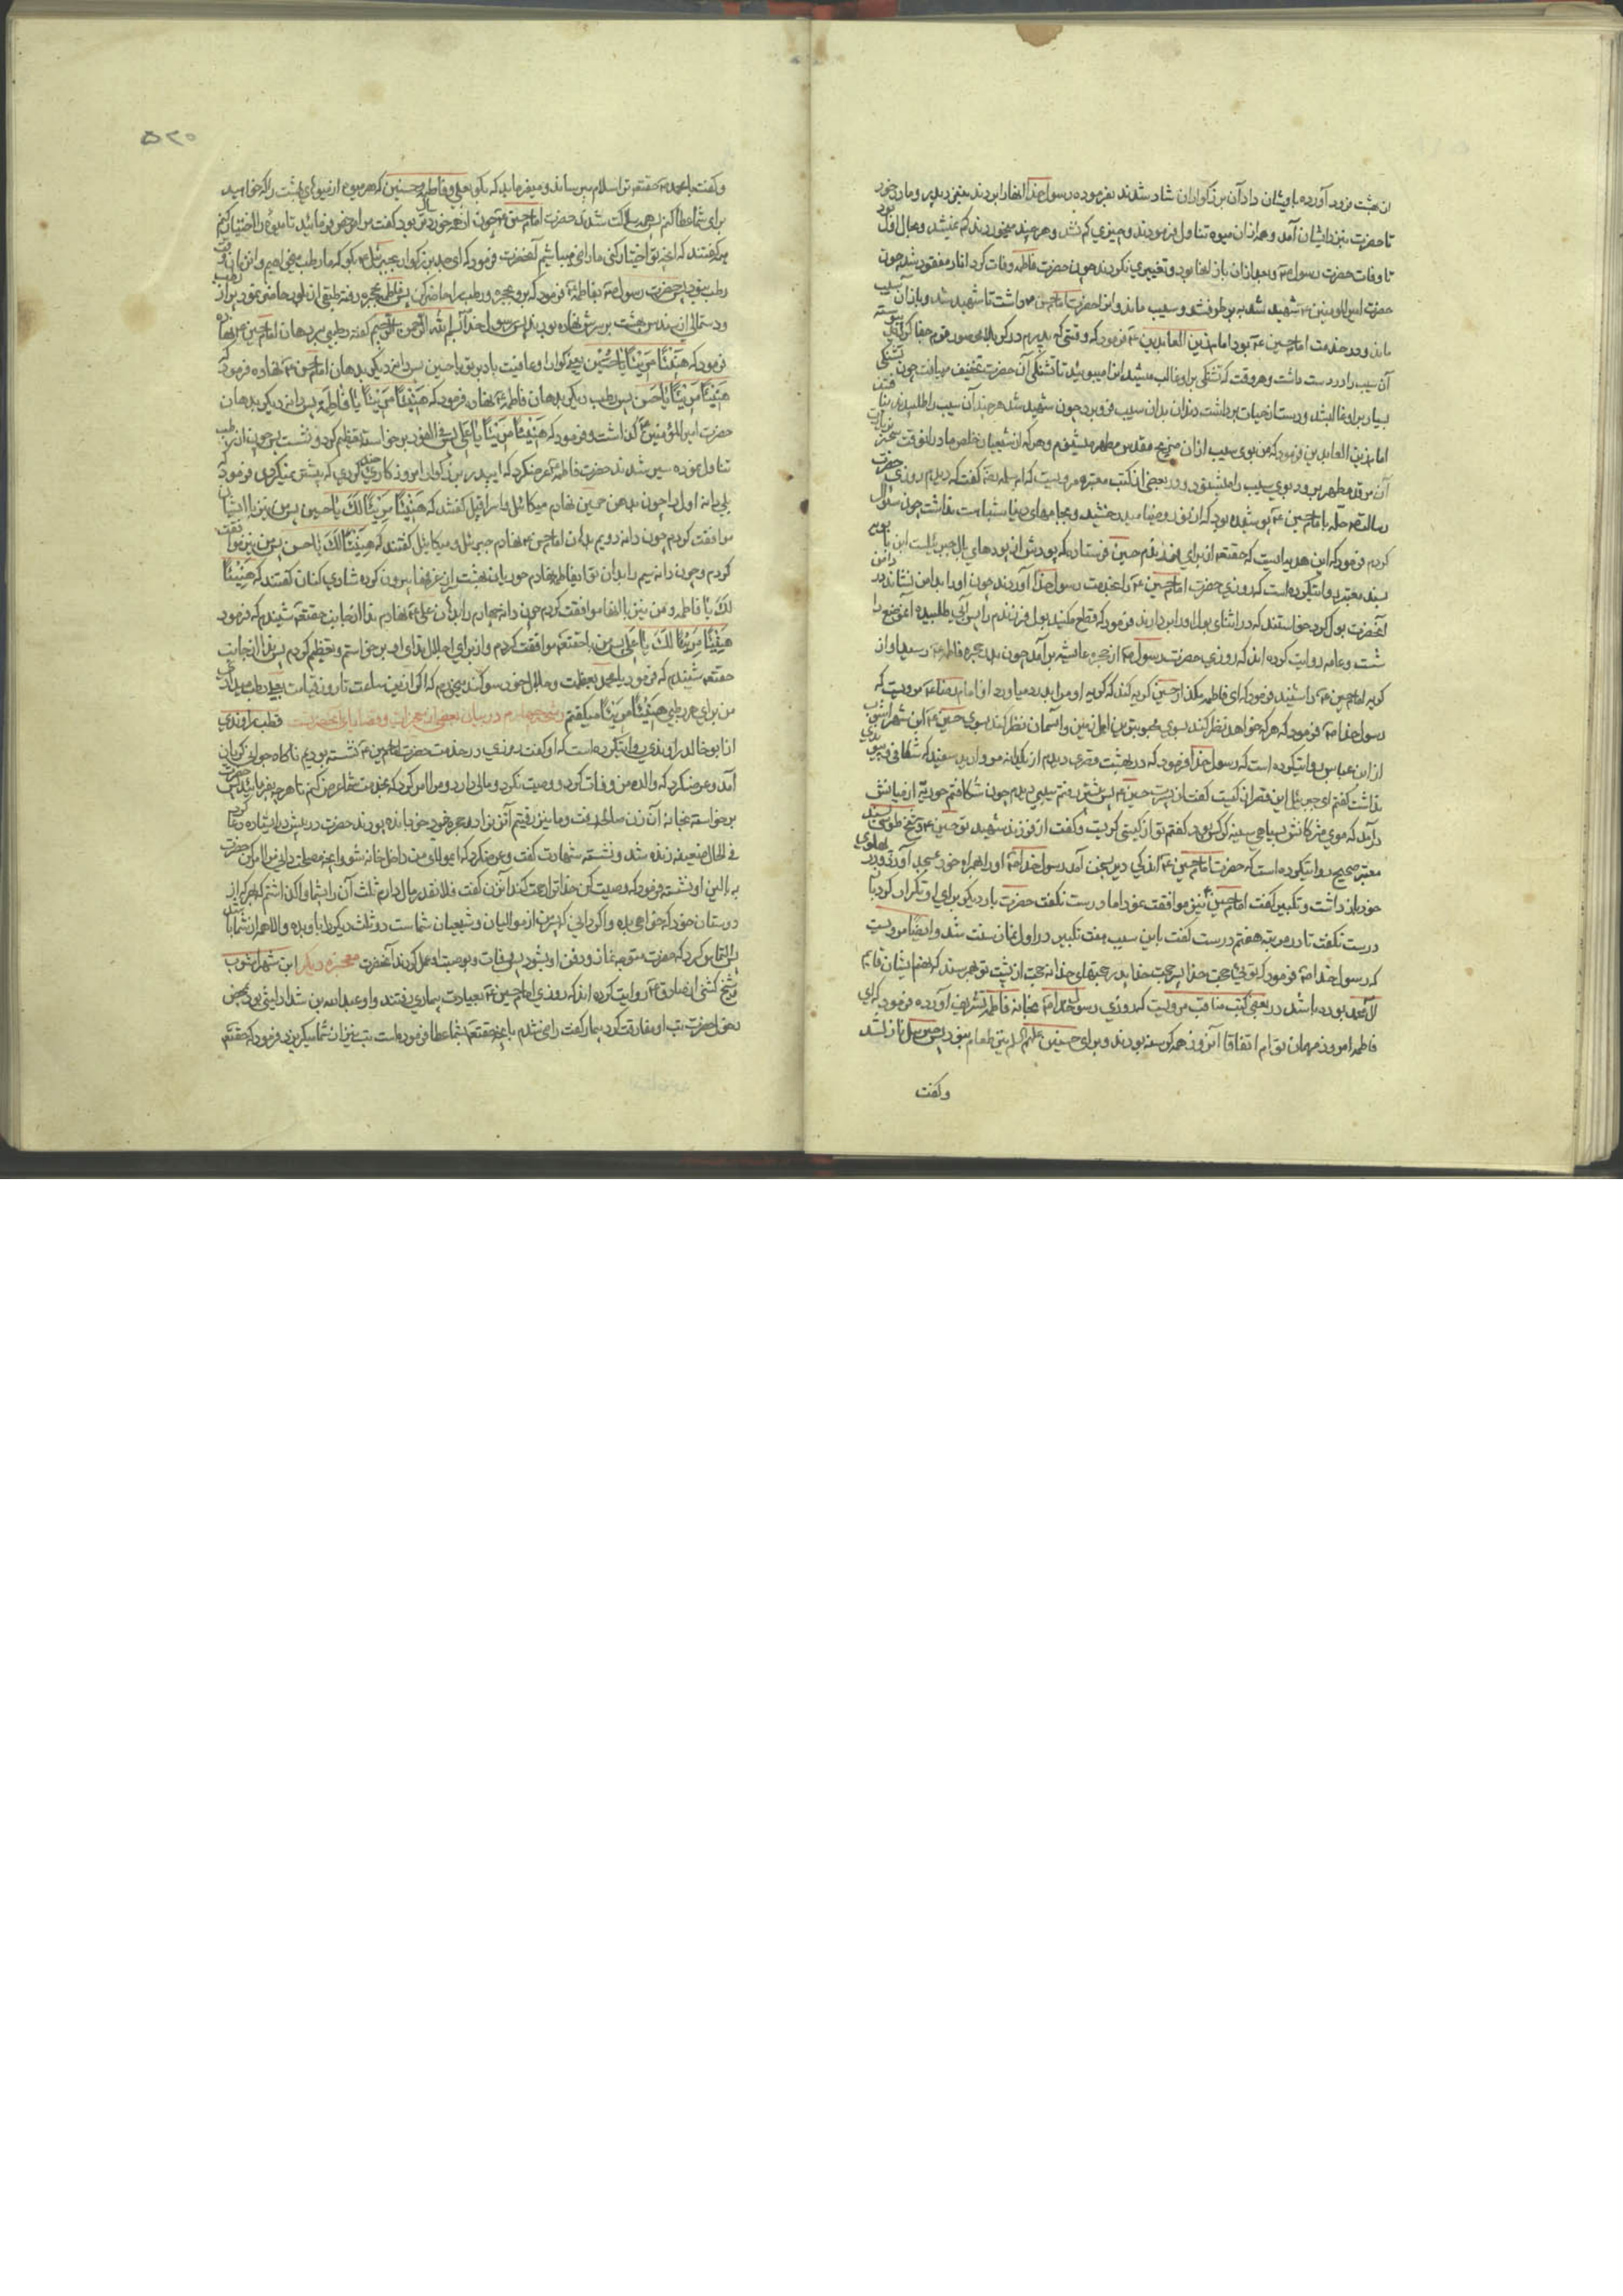 از بهشت فرود آورده بایشان داد آن بزرگواران شاد شدند بفرموده رسول خدا آنها را بردند بنزد پدر و مادر خود
تا حضرت بنزد ایشان آمد و همه از آن میوه تناول فرمودند و چیزی کم نشد و هر چند میخوردند کم نمیشد و بحال اول بود
تا وفات حضرت رسول ص و بعد از آن باز آنها بود و تغییری نکردند چون حضرت فاطمه وفات کرد انار مفقود شد چون
حضرت امیرالمؤمنین ع شهید شد به برطرف شد و سیب ماند و آنرا حضرت امام حسن ع داشت تا شهید شد و بعد از آن سیب
ماند و در خدمت امام حسین ع بود امام زین العابدین ع فرمود که وقتی که پدرم در کربلا محصور قوم جفا کار بود پیوسته
آن سیب را در دست داشت و هر وقت که تشنگی بر او غالب میشد آنرا میبوئید تا تشنگی آن حضرت تخفیف مییافت چون تشنگی
بسیار بر او غالب شد و دست از حیات برداشت دندان بدان سیب فرو برد چون شهید شد هر چند آن سیب را طلبیدند نیافتند
امام زین العابدین فرمود که من بوی سیب از آن ضریح مقدس مطهر میشنوم و هر که از شیعیان مخلص ما در آن وقت سحر بزیارت
آن مرقد مطهر برود بوی سیب را میشنود و در بعضی از کتب معتبره مرویست که ام سلمه رض گفت که دیدم روزی حضرت
رسالت ص حله با امام حسین ع پوشیده بود که از نور و ضیا میدرخشید و بجامهای دنیا شباهت نداشت چون سؤال
کردم فرمود که این هدیه ایست که حقتعالی از برای فرزندم حسین فرستاده که پودش از پودهای بال جبرئیلست ابن بابویه
بسند معتبر روایت کرده است که روزی حضرت امام حسین ع را بخدمت رسول خدا آوردند چون او را بدامن نشاند در دامن
آنحضرت بول کرد خواستند که در اثنای بول او را بردارند فرمود که قطع مکنید بول فرزندم را پس آبی طلبیده آن موضع را
شست و عامه روایت کرده اند که روزی حضرت رسول ص از حجره عایشه برآمد چون بدر حجره فاطمه ع رسید آواز
گریه امام حسین ع را شنید فرمود که ای فاطمه مگذار حسین گریه کند که گریه او مرا بدرد میاورد از امام رضا ع مرویست که
رسول خدا ص فرمود که هر که خواهد نظر کند بسوی محبوبترین اهل زمین و آسمان نظر کند بسوی حسین ع ابن شهر آشوب
از ابن عباس روایت کرده است که رسول خدا فرمود که در بهشت قصری دیدم از یکدانه مروارید سفید که شکافی و پیوندی
نداشت گفتم ای جبرئیل این قصر از کیست گفت از پسرت حسین ع پس پیشتر رفتم سیبی دیدم چون شکافتم حوریه از میانش
درآمد که موی مژگانش بسیاهی سینه کرکس بود گفتم تو از کیستی گریست و گفت از فرزند شهید تو حسین ع و شیخ طوسی بسند
معتبر صحیح روایت کرده است که حضرت امام حسین ع اندکی دیر بسخن آمد رسول خدا ص او را همراه خود بمسجد آورد و در پهلوی
خود بازداشت و تکبیر گفت امام حسین نیز موافقت نمود اما درست نگفت حضرت بار دیگر برای او تکرار کرد باز
درست نگفت تا در مرتبه هفتم درست گفت باین سبب هفت تکبیر در اول نماز سنت شد و ایضا مرویست
که رسول خدا ص فرمود که توئی حجت خدا پسر حجت خدا پدر حجتهای خدا نه حجت از پشت تو بهم رسند که نهم ایشان قایم
آل محمد بوده باشد در بعضی کتب مناقب مرویست که روزی رسول خدا ص بخانه فاطمه تشریف آورده فرمود که ای
فاطمه امروز مهمان توام اتفاقا آنروز همه گرسنه بودند و برای حسنین علیهم السلام نیز طعام نبود پس جبرئیل نازل شد
وگفت
۵۲۰
وگفت یا محمد ص حقتعالی ترا سلام میرساند و میفرماید که بگو بعلی و فاطمه و حسنین که هر میوه از میوهای بهشت را که خواهید
برای شما عطا کنم همه ساکت شدند حضرت امام حسین ع چون از همه خوردتر بود گفت مرا مرخص فرمائید تا میوه را اختیار کنم
همه گفتند که آنچه تو اختیار کنی ما راضی میباشیم آنحضرت فرمود که ای جد بزرگوار بجبرئیل ع بگو که ما رطب میخواهیم و آن زمان وقت
رطب نبود پس حضرت رسول ص بفاطمه ع فرمود که برو بحجره و رطب را حاضر کن پس فاطمه بحجره رفته طبقی از بلور حاضر نمود پر از رطب
و دستمالی از سندس بهشت بر سرش نهاده بودند پس رسول خدا ص بسم الله الرحمن الرحیم گفته رطبی بر دهان امام حسین ع نهاده
فرمود که هَنِیئًا مَرِیئًا یَا حُسَیْن یعنی گوارا و عافیت باد بر تو یا حسین پس دانه دیگر بدهان امام حسن ع نهاده فرمود که
هَنِیئًا مَرِیئًا یَا حَسَن پس رطب دیگر بدهان فاطمه ع نهاد و فرمود که هَنِیئًا مَرِیئًا یَا فَاطِمَة پس دانه دیگر بدهان
حضرت امیرالمؤمنین ع گذاشت و فرمود که هَنِیئًا مَرِیئًا یَا عَلِی پس فی الفور برخاسته تعظیم کرد و نشست پس چون از رطب
تناول نموده سیر شدند حضرت فاطمه ع عرض کرد که ای پدر بزرگوار امروز کاری چند کردی که پیشتر نمیکردی فرمود که
بلی دانه اول را چون بدهن حسین نهادم میکائیل و اسرافیل گفتند که هَنِیئًا مَرِیئًا لَكَ یَا حسین پس من نیز با ایشان
موافقت کردم چون دانه دویم بدهان امام حسن ع نهادم جبرئیل و میکائیل گفتند که هَنِیئًا لَكَ یا حسن پس من نیز موافقت
کردم و چون دانه سیم را بدهان تو ای فاطمه نهادم حوریان بهشت سر از غرفها بیرون کرده شادی کنان گفتند که هَنِیئًا
لَكَ یَا فاطمه و من نیز با آنها موافقت کردم چون دانه چهارم را بدهان علی ع نهادم ندا از جانب حقتعالی شنیدم که فرمود
هَنِیئًا مَرِیئًا لَكَ یَا عَلِی پس من با حقتعالی موافقت کردم و از برای اجلال ندای او برخواستم و تعظیم کردم پس ندا از جانب
حقتعالی شنیدم که فرمود یا محمد بعظمت و جلال خود سوگند میخورم که اگر از این ساعت تا روز قیامت بعلی رطب میدادی
من برای هر رطبی هَنِیئًا مَرِیئًا میگفتم چهارم در بیان بعضی از معجزات و قضایای آنحضرت قطب راوندی
از ابو خالد راوندی روایت کرده است که او گفت روزی در خدمت حضرت امام حسین ع نشسته بودیم ناگاه جوانی گریان
آمد و عرض کرد که والده من وفات کرد و وصیت نکرد و مالی دارد و مرا امر کرد که بخدمت شما عرض کنم تا هر چه بفرمائید پس حضرت
برخواسته بخانه آن زن صالحه رفت و ما نیز رفتیم آنزن را در حجره خود خوابانده بودند حضرت در پیش در ایستاده دعا کرد
فی الحال ضعیفه زنده شد و نشسته شهادت گفت و عرض کرد که ای مولای من داخل خانه شو و آنچه مصلحت دانی مرا امر کن حضرت
به بالین او نشسته فرمود که وصیت کن خدا ترا رحمت کند آنزن گفت فلانقدر مال دارم ثلث آن را بشما واگذاشتم که بهر که از
دوستان خود که خواهی بده و اگر دانی که پسرم از موالیان و شیعیان شماست دو ثلث دیگر را باو بده والا همه از شما باشد
پس التماس کرد که حضرت متوجه نماز و دفن او شود پس وفات و بوصیت او عمل کردند آنحضرت معجزه دیگر ابن شهر آشوب
و شیخ کشی از صادق ع روایت کرده اند که روزی امام حسین ع بعیادت بیماری رفتند و او عبدالله بن شداد لیثی بود بمحض
دخول حضرت تب از او مفارقت کرد بیمار گفت راضی شدم بآنچه حقتعالی بشما عطا فرموده است تب نیز از شما میگریزد فرمود که حقتعالی